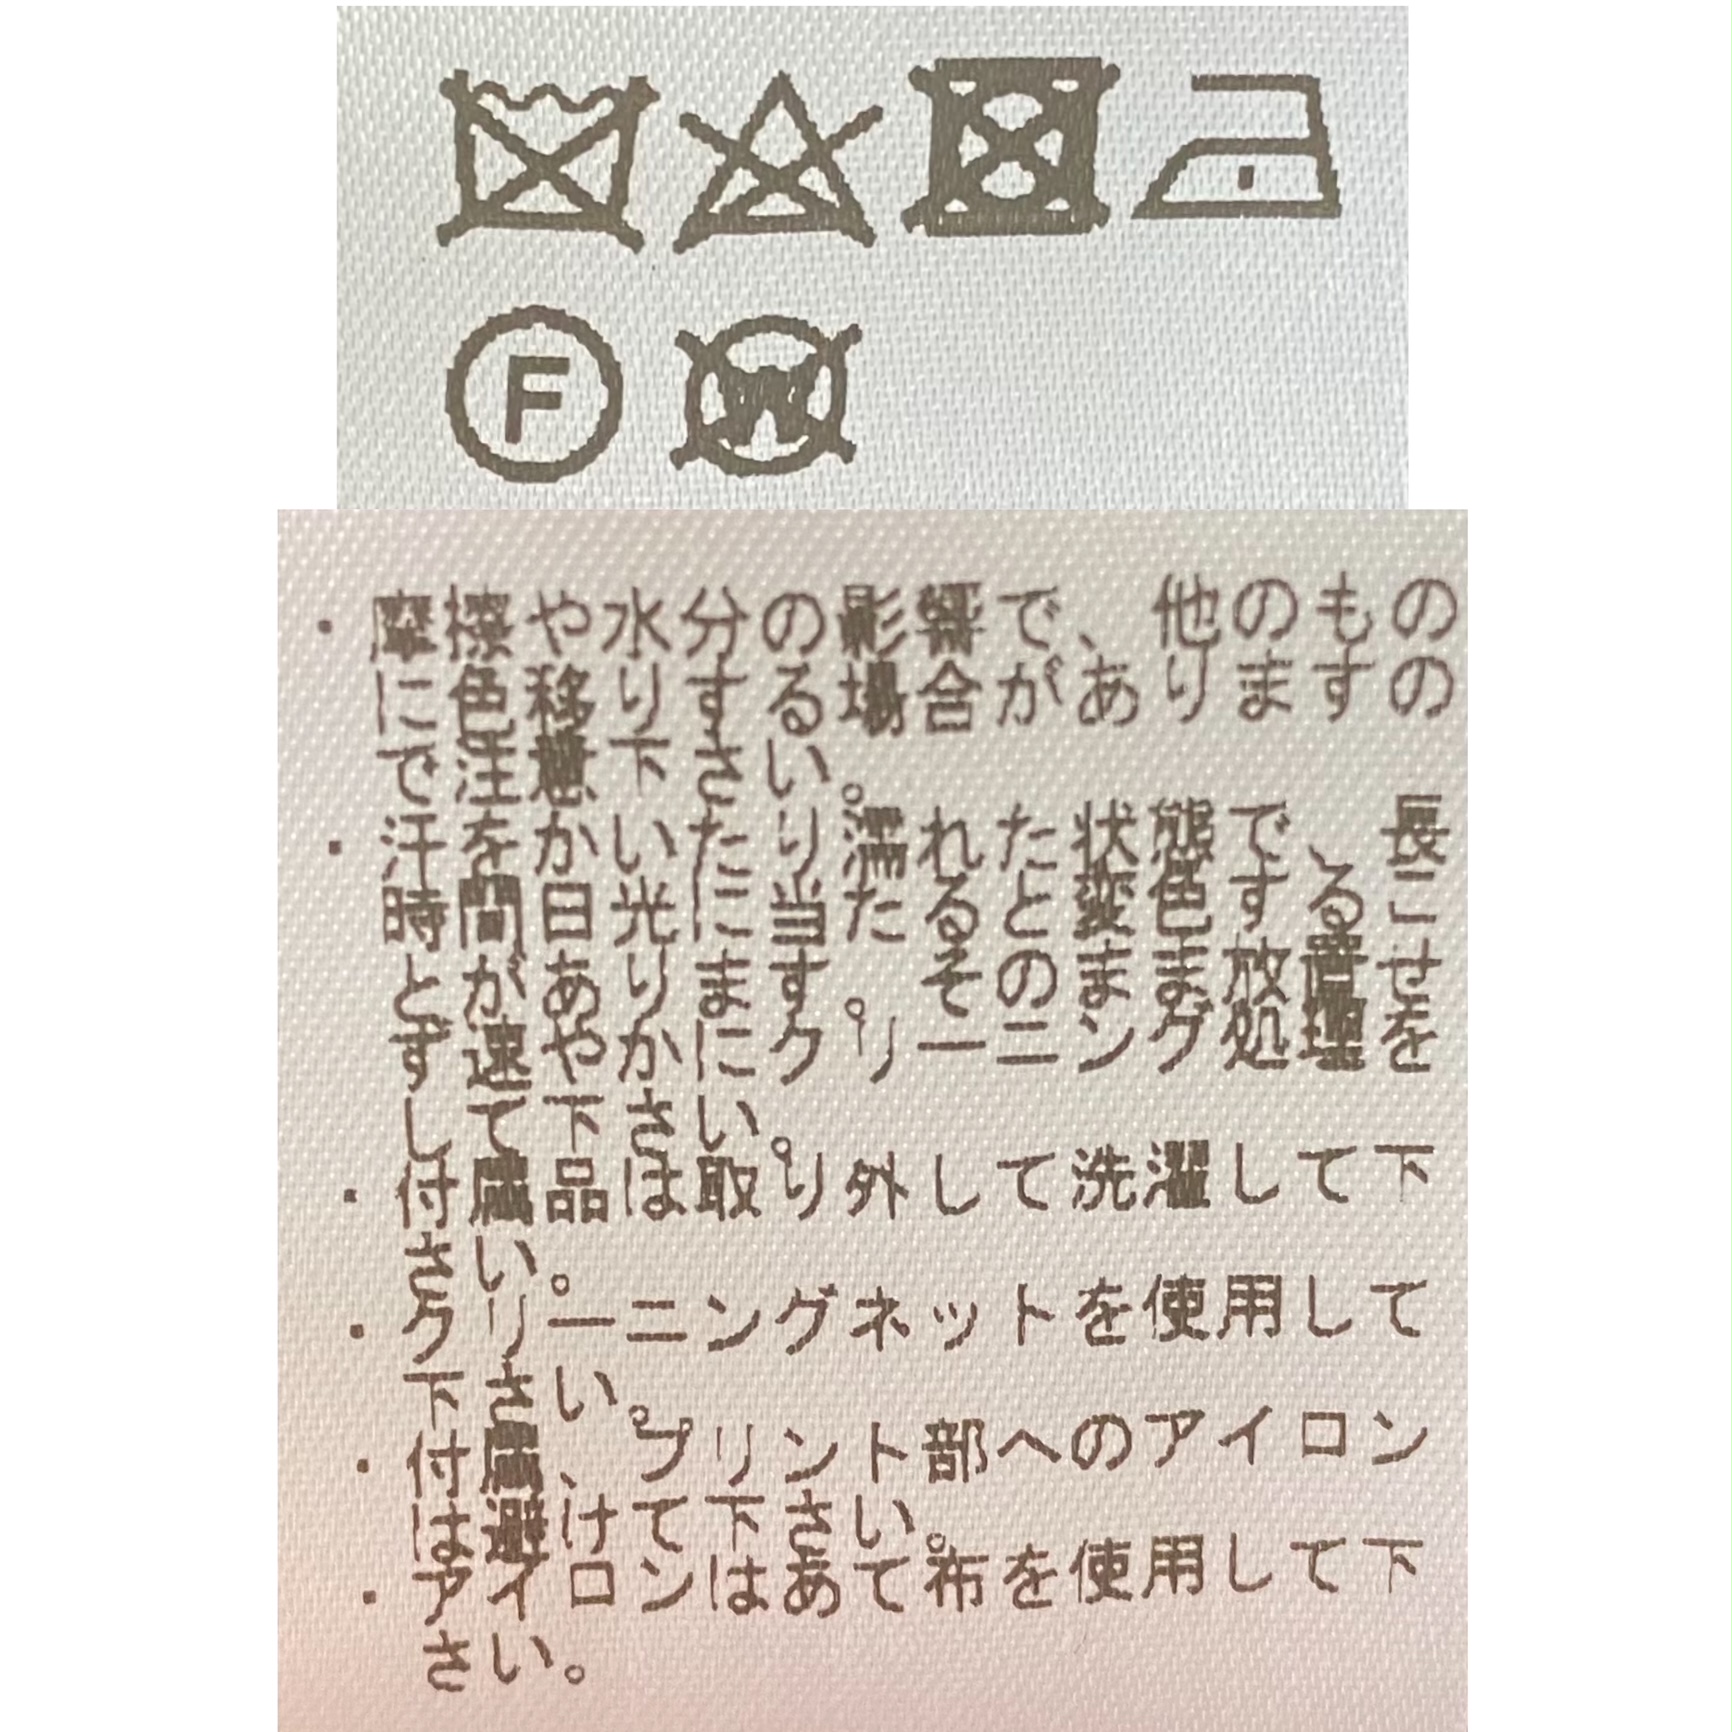 F
W
・摩擦や水分の影響で、他のもの
に色移りする場合がありますの
で注意下さい。
・汗をかいたり濡れた状態で、長
時間日光に当たると変色するこ
とがあります。そのまま放置せ
ず速やかにクリーニング処理を
して下さい。
・付属品は取り外して洗濯して下
さい。
・クリーニングネットを使用して
下さい。
・付属、プリント部へのアイロン
は避けて下さい。
・アイロンはあて布を使用して下
さい。